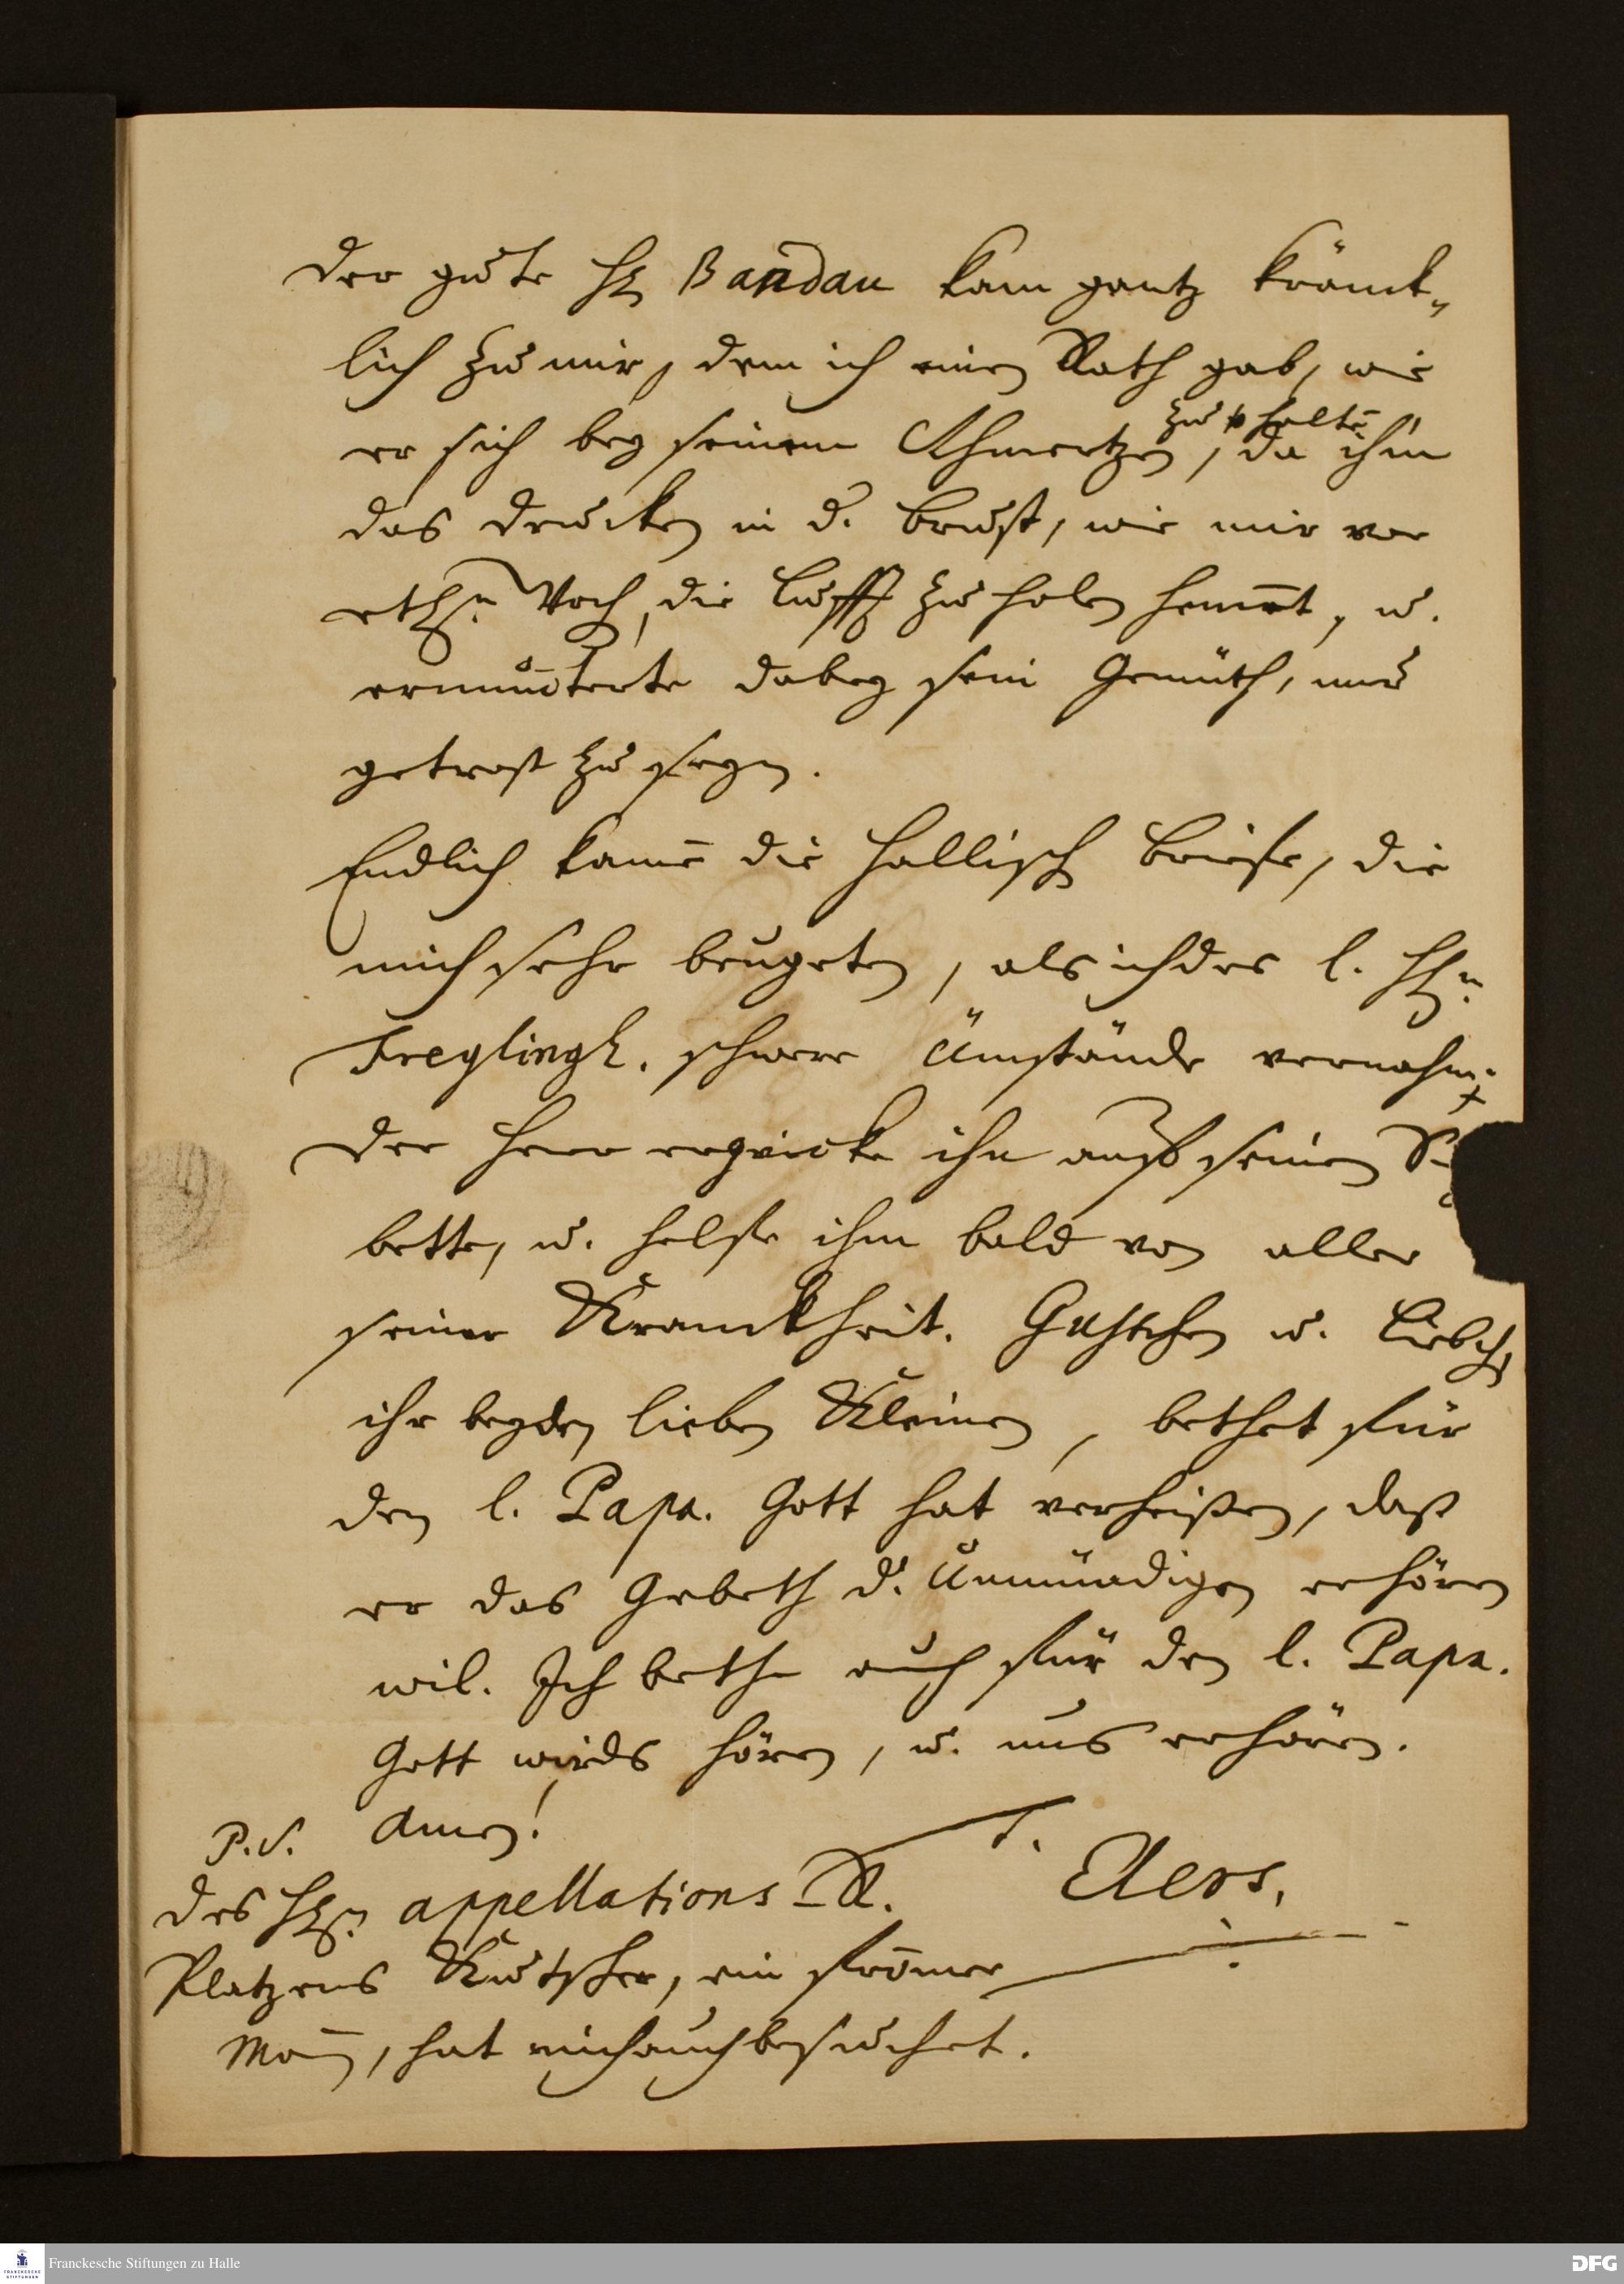 Der gute H. Bandau kam gantz kränck-
lich zu mir, dem ich einen Rath gab, wie
er sich bey seinem Schmertzen zu halten, da ihm
das drucken in d. Brust, wie mir vor
etl. Woch, die Lufft zu holen hemmt, u.
ermunterte dabey sein Gemüth, nur
getrost zu seyn.
Endlich kamen die Hallisch Briefe, die
mich sehr beugeten, als ich des l. H.
Freylingh. schwere Umstände vernahm.
Der Herr erqvicke ihn auf seinem
bette, u. helfe ihm bald von aller
seiner Kranckheit. Gustchen u. Liebch,
ihr beyden lieben Kleinen, bethet für
den l. Papa. Gott hat verheißen, daß
er das Gebeth d. Unmündigen erhören
wil. Ich bethe auch für den l. Papa.
Gott wirds hören, u. uns erhören.
Amen!
Elers.
P.S.
Des H. appellations-R.
Platzens Kutscher, ein frommer
Mann, hat mich auch besuchet.
Franckesche Stiftungen zu Halle
DFG